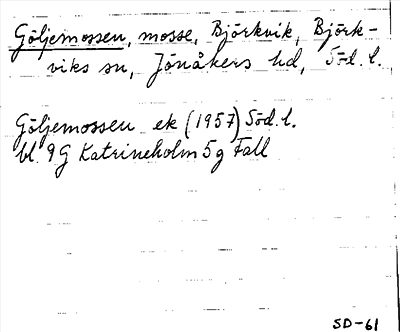 Göljemossen, mosse, Björkvik, Björk-
viks sn, Jönåkers hd, Söd. l.
Göljemossen ek (1957) Söd. l.
bl. 9G Katrineholm 5g Fall
SD-61